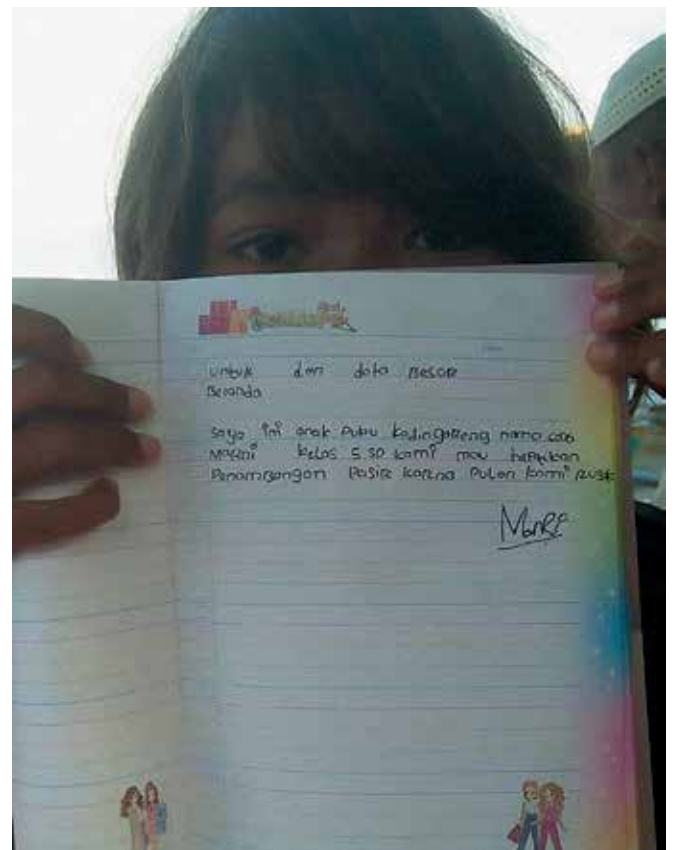 untuk dan data Besar
Beranda
saya ini anak Pulau Kodingareng nama saya
MARNI kelas 5 SD kami mau hentikan
Penambangan Pasir karena Pulau kami rusak